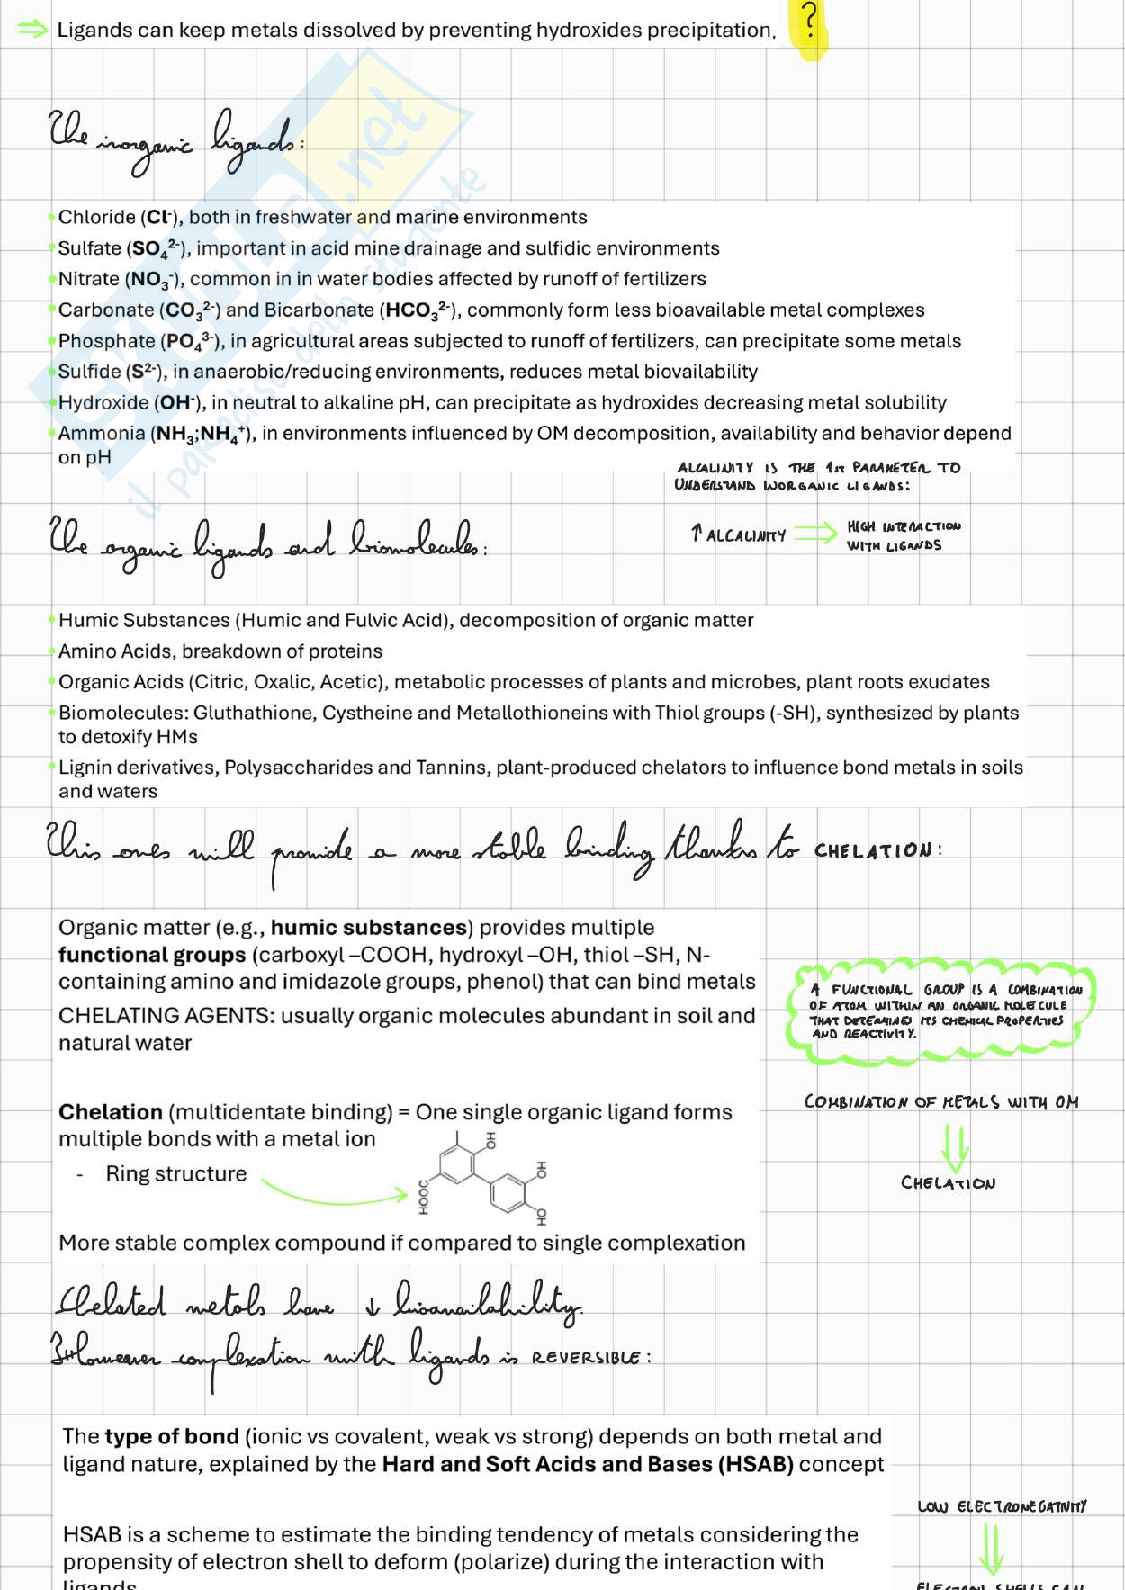 ⇒ Ligands can keep metals dissolved by preventing hydroxides precipitation. ?
The inorganic ligands:
Chloride (Cl⁻), both in freshwater and marine environments
Sulfate (SO₄²⁻), important in acid mine drainage and sulfidic environments
Nitrate (NO₃⁻), common in in water bodies affected by runoff of fertilizers
Carbonate (CO₃²⁻) and Bicarbonate (HCO₃²⁻), commonly form less bioavailable metal complexes
Phosphate (PO₄³⁻), in agricultural areas subjected to runoff of fertilizers, can precipitate some metals
Sulfide (S²⁻), in anaerobic/reducing environments, reduces metal biovailability
Hydroxide (OH⁻), in neutral to alkaline pH, can precipitate as hydroxides decreasing metal solubility
Ammonia (NH₃;NH₄⁺), in environments influenced by OM decomposition, availability and behavior depend
on pH
ALCALINITY IS THE 1st PARAMETER TO
UNDERSTAND INORGANIC LIGANDS:
↑ ALCALINITY ⇒ HIGH INTERACTION
WITH LIGANDS
The organic ligands and biomolecules:
Humic Substances (Humic and Fulvic Acid), decomposition of organic matter
Amino Acids, breakdown of proteins
Organic Acids (Citric, Oxalic, Acetic), metabolic processes of plants and microbes, plant roots exudates
Biomolecules: Gluthathione, Cystheine and Metallothioneins with Thiol groups (-SH), synthesized by plants
to detoxify HMs
Lignin derivatives, Polysaccharides and Tannins, plant-produced chelators to influence bond metals in soils
and waters
This ones will provide a more stable binding thanks to CHELATION:
Organic matter (e.g., humic substances) provides multiple
functional groups (carboxyl –COOH, hydroxyl –OH, thiol –SH, N-
containing amino and imidazole groups, phenol) that can bind metals
CHELATING AGENTS: usually organic molecules abundant in soil and
natural water
A FUNCTIONAL GROUP IS A COMBINATION
OF ATOM WITHIN AN ORGANIC MOLECULE
THAT DETERMINED ITS CHEMICAL PROPERTIES
AND REACTIVITY.
Chelation (multidentate binding) = One single organic ligand forms
multiple bonds with a metal ion
- Ring structure
HOOC OH OH OH
COMBINATION OF METALS WITH OM
⇓
CHELATION
More stable complex compound if compared to single complexation
Chelated metals have ↓ bioavailability.
However complexation with ligands is REVERSIBLE:
The type of bond (ionic vs covalent, weak vs strong) depends on both metal and
ligand nature, explained by the Hard and Soft Acids and Bases (HSAB) concept
LOW ELECTRONEGATIVITY
⇓
HSAB is a scheme to estimate the binding tendency of metals considering the
propensity of electron shell to deform (polarize) during the interaction with
ligands
ELECTRON SHELLS CAN
SKUOLA.net
il paradiso dello studente